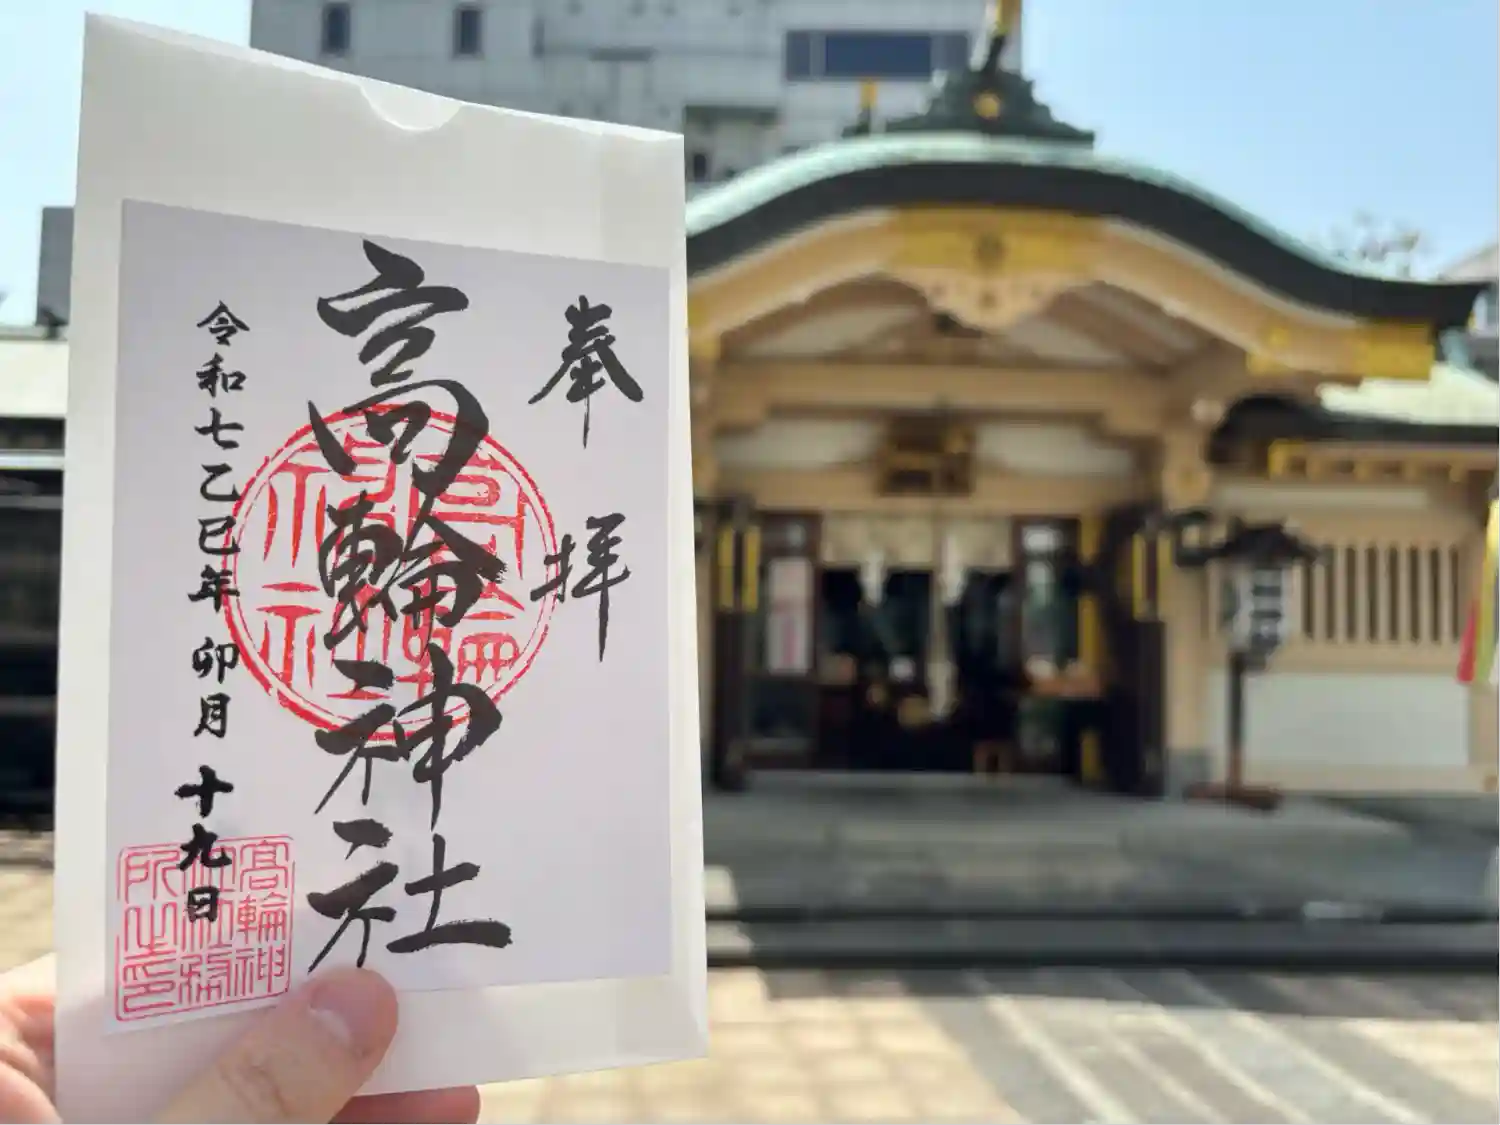 奉拝
高輪神社
令和七乙巳年 卯月 十九日
高輪神
社社務
所之印